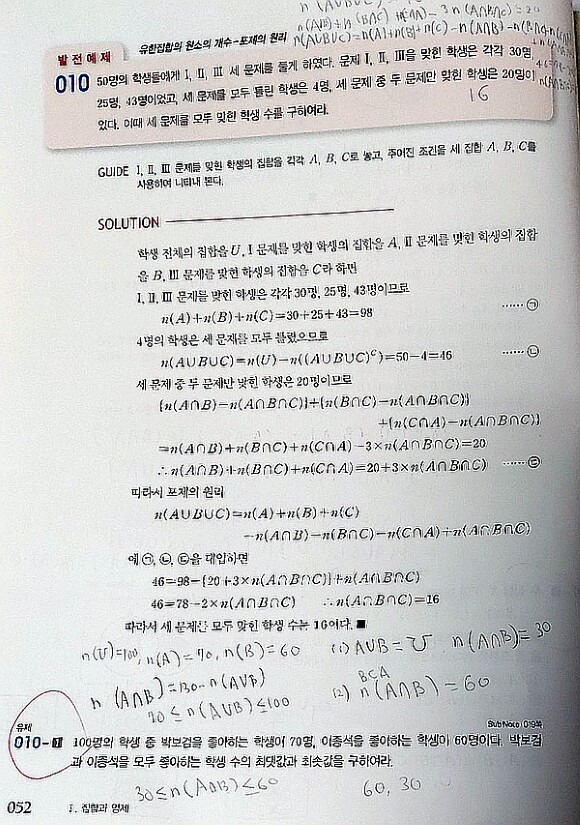 n(A∪B∪C)=n(A)+n(B)+n(C)-n(A∩B)-n(B∩C)
발전예제
유한집합의 원소의 개수-포제의 원리
010 50명의 학생들에게 Ⅰ, Ⅱ, Ⅲ 세 문제를 풀게 하였다. 문제 Ⅰ, Ⅱ, Ⅲ을 맞힌 학생은 각각 30명,
25명, 43명이었고, 세 문제를 모두 틀린 학생은 4명, 세 문제 중 두 문제만 맞힌 학생은 20명이
었다. 이때 세 문제를 모두 맞힌 학생 수를 구하여라.
16
GUIDE Ⅰ, Ⅱ, Ⅲ 문제를 맞힌 학생의 집합을 각각 A, B, C로 놓고, 주어진 조건을 세 집합 A, B, C를
사용하여 나타내 본다.
SOLUTION
학생 전체의 집합을 U, Ⅰ 문제를 맞힌 학생의 집합을 A, Ⅱ 문제를 맞힌 학생의 집합
을 B, Ⅲ 문제를 맞힌 학생의 집합을 C라 하면
Ⅰ, Ⅱ, Ⅲ 문제를 맞힌 학생은 각각 30명, 25명, 43명이므로
n(A)+n(B)+n(C)=30+25+43=98 ······ ㉠
4명의 학생은 세 문제를 모두 틀렸으므로
n(A∪B∪C)=n(U)-n((A∪B∪C)ᶜ)=50-4=46 ······ ㉡
세 문제 중 두 문제만 맞힌 학생은 20명이므로
{n(A∩B)-n(A∩B∩C)}+{n(B∩C)-n(A∩B∩C)}
+{n(C∩A)-n(A∩B∩C)}
=n(A∩B)+n(B∩C)+n(C∩A)-3×n(A∩B∩C)=20
∴ n(A∩B)+n(B∩C)+n(C∩A)=20+3×n(A∩B∩C) ······ ㉢
따라서 포제의 원리
n(A∪B∪C)=n(A)+n(B)+n(C)
-n(A∩B)-n(B∩C)-n(C∩A)+n(A∩B∩C)
에 ㉠, ㉡, ㉢을 대입하면
46=98-{20+3×n(A∩B∩C)}+n(A∩B∩C)
46=78-2×n(A∩B∩C) ∴ n(A∩B∩C)=16
따라서 세 문제를 모두 맞힌 학생 수는 16이다. ■
n(U)=100, n(A)=70, n(B)=60 (1) A∪B=U n(A∩B)=30
n(A∩B)=130-n(A∪B)
70≤n(A∪B)≤100
B⊂A
(2) n(A∩B)=60
유제
SubNote 019쪽
010-1 100명의 학생 중 박보검을 좋아하는 학생이 70명, 이종석을 좋아하는 학생이 60명이다. 박보검
과 이종석을 모두 좋아하는 학생 수의 최댓값과 최솟값을 구하여라.
30≤n(A∩B)≤60 60, 30
052 Ⅰ. 집합과 명제